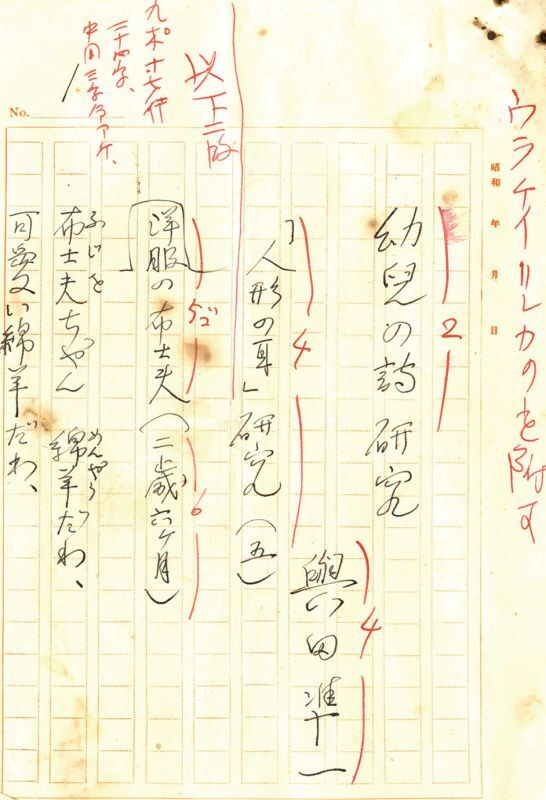 ウラケイ一レカのを附す
昭和 年 月 日
2
幼兒の詩研究
4
與田凖一
4
「人形の耳」研究（五）
以下二段
洋服の布士夫（二歳六ケ月）
ゴ
6
九ポ
二十四字
No.
ふじを
布士夫ちやん 綿羊だわ、
めんやう
可愛い綿羊だわ、